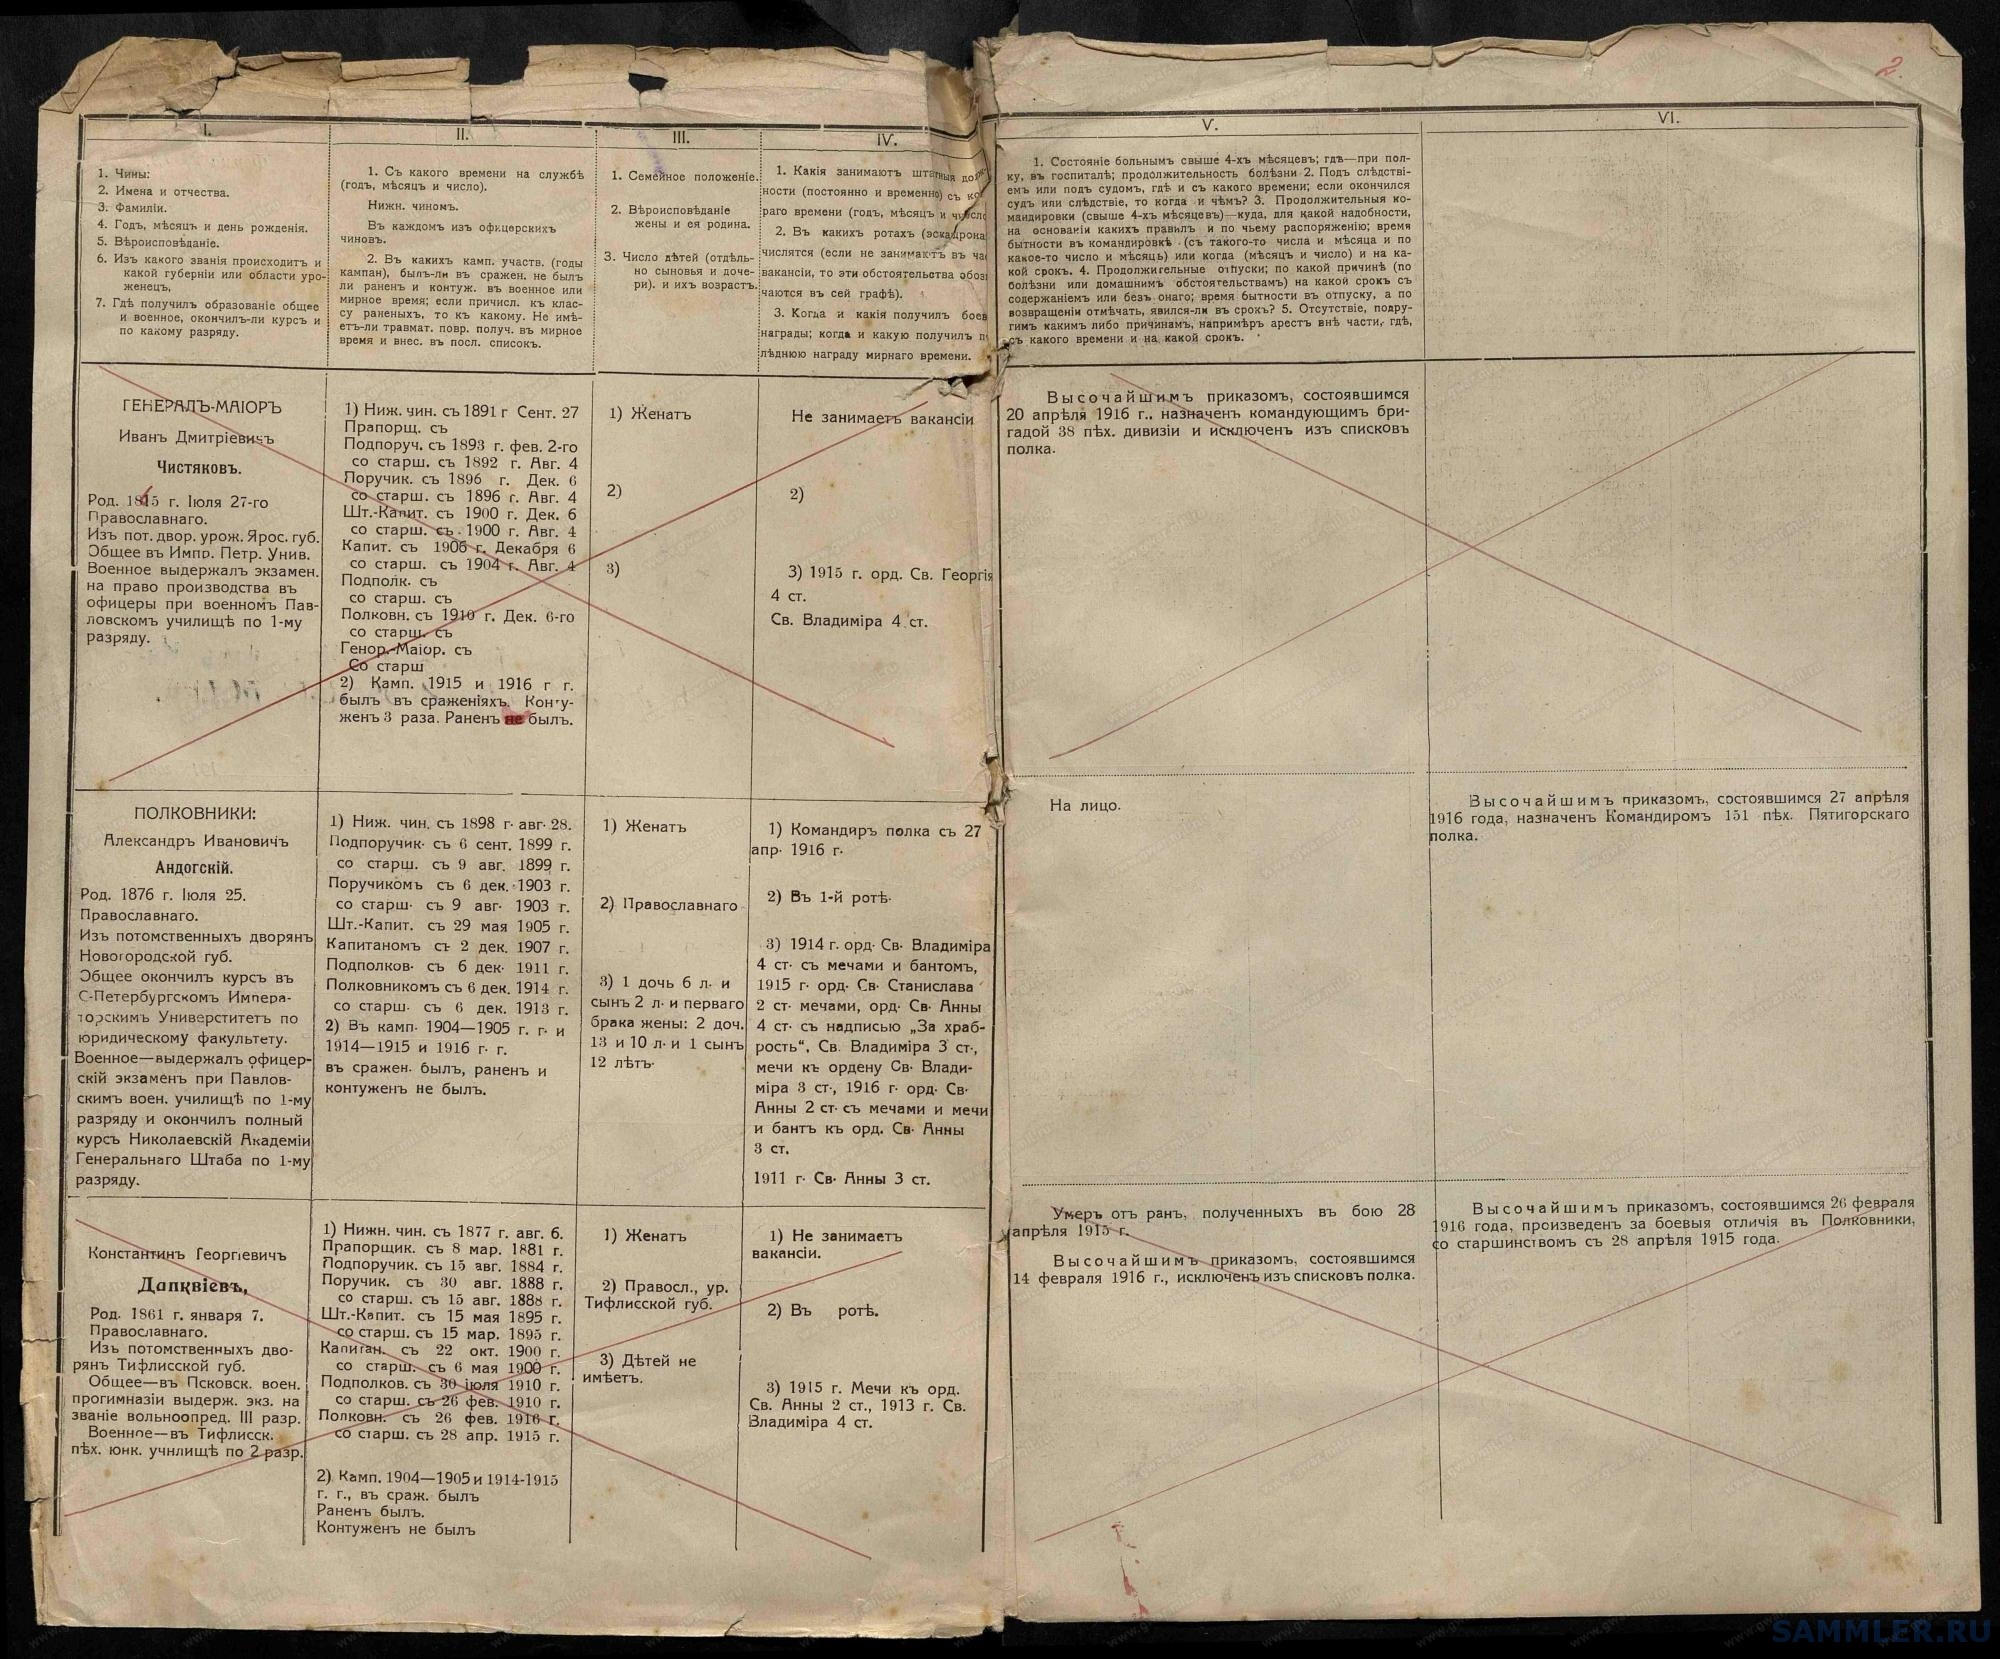 2.
I.
1. Чины:
2. Имена и отчества.
3. Фамиліи.
4. Годъ, мѣсяцъ и день рожденія.
5. Вѣроисповѣданіе.
6. Изъ какого званія происходитъ и
какой губерніи или области уро-
женецъ,
7. Гдѣ получилъ образованіе общее
и военное, окончилъ-ли курсъ и
по какому разряду.
II.
1. Съ какого времени на службѣ
(годъ, мѣсяцъ и число).
Нижн. чиномъ.
Въ каждомъ изъ офицерскихъ
чиновъ.
2. Въ какихъ камп. участв. (годы
кампан), былъ-ли въ сражен. не былъ
ли раненъ и контуж. въ военное или
мирное время; если причисл. къ клас-
су раненыхъ, то къ какому. Не имѣ-
етъ-ли травмат. повр. получ. въ мирное
время и внес. въ посл. список.
III.
1. Семейное положеніе.
2. Вѣроисповѣданіе
жены и ея родина.
3. Число дѣтей (отдѣль-
но сыновья и доче-
ри). и ихъ возрастъ.
IV.
1. Какія занимаютъ штатныя
ности (постоянно и временно) съ
раго времени (годъ, мѣсяцъ и число
2. Въ какихъ ротахъ (эскадрона
числятся (если не занимаютъ въ
вакансіи, то эти обстоятельства
чаются въ сей графѣ).
3. Когда и какія получилъ боев
награды; когда и какую получилъ
лѣднюю награду мирнаго времени.
V.
1. Состояніе больнымъ свыше 4-хъ мѣсяцевъ; гдѣ—при пол-
ку, въ госпиталѣ; продолжительность болѣзни 2. Подъ слѣдстві-
емъ или подъ судомъ, гдѣ и съ какого времени; если окончился
судъ или слѣдствіе, то когда и чѣмъ? 3. Продолжительныя ко-
мандировки (свыше 4-хъ мѣсяцевъ)—куда, для какой надобности,
на основаніи какихъ правилъ и по чьему распоряженію; время
бытности въ командировкѣ (съ такого-то числа и мѣсяца и по
какое-то число и мѣсяцъ) или когда (мѣсяцъ и число) и на ка-
кой срокъ. 4. Продолжительные отпуски; по какой причинѣ (по
болѣзни или домашнимъ обстоятельствамъ) на какой срокъ съ
содержаніемъ или безъ онаго; время бытности въ отпуску, а по
возвращеніи отмѣчать, явился-ли въ срокъ? 5. Отсутствіе, подру-
гимъ какимъ либо причинамъ, напримѣръ арестъ внѣ части, гдѣ,
съ какого времени и на какой срокъ.
VI.
ГЕНЕРАЛЪ-МАІОРЪ
Иванъ Дмитріевичъ
Чистяковъ.
Род. г. Іюля 27-го
Православнаго.
Изъ пот. двор. урож. Ярос. губ.
Общее въ Импр. Петр. Унив.
Военное выдержалъ экзамен.
на право производства въ
офицеры при военномъ Пав-
ловскомъ училищѣ по 1-му
разряду.
1) Ниж. чин. съ 1891 г Сент. 27
Прапорщ. съ
Подпоруч. съ 1893 г. фев. 2-го
со старш. съ 1892 г. Авг. 4
Поручик. съ 1896 г. Дек. 6
со старш. съ 1896 г. Авг. 4
Шт.-Капит. съ 1900 г. Дек. 6
со старш. съ 1900 г. Авг. 4
Капит. съ 1906 г. Декабря 6
со старш. съ 1904 г. Авг. 4
Подполк. съ
со старш. съ
Полковн. съ 1910 г. Дек. 6-го
со старш. съ
Генор.-Маіор. съ
Со старш
2) Камп. 1915 и 1916 г г.
былъ въ сраженіяхъ. Конту-
женъ 3 раза. Раненъ не былъ.
1) Женатъ
2)
3)
Не занимаетъ вакансіи
2)
3) 1915 г. орд. Св. Георгія
4 ст.
Св. Владиміра 4 ст.
Высочайшимъ приказомъ, состоявшимся
20 апрѣля 1916 г., назначенъ командующимъ бри-
гадой 38 пѣх. дивизіи и исключенъ изъ списковъ
полка.
ПОЛКОВНИКИ:
Александръ Ивановичъ
Андогскій.
Род. 1876 г. Іюля 25.
Православнаго.
Изъ потомственныхъ дворянъ
Новогородской губ.
Общее окончилъ курсъ въ
С-Петербургскомъ Импера-
торскимъ Университетъ по
юридическому факультету.
Военное—выдержалъ офицер-
скій экзаменъ при Павлов-
скимъ воен. училищѣ по 1-му
разряду и окончилъ полный
курсъ Николаевскій Академіи
Генеральнаго Штаба по 1-му
разряду.
1) Ниж. чин. съ 1898 г. авг. 28.
Подпоручик. съ 6 сент. 1899 г.
со старш. съ 9 авг. 1899 г.
Поручикомъ съ 6 дек. 1903 г.
со старш. съ 9 авг. 1903 г.
Шт.-Капит. съ 29 мая 1905 г.
Капитаномъ съ 2 дек. 1907 г.
Подполков. съ 6 дек. 1911 г.
Полковникомъ съ 6 дек. 1914 г.
со старш. съ 6 дек. 1913 г.
2) Въ камп. 1904—1905 г. г. и
1914—1915 и 1916 г. г.
въ сражен. былъ, раненъ и
контуженъ не былъ.
1) Женатъ
2) Православнаго
3) 1 дочь 6 л. и
сынъ 2 л. и перваго
брака жены: 2 доч.
13 и 10 л. и 1 сынъ
12 лѣтъ.
1) Командиръ полка съ 27
апр. 1916 г.
2) Въ 1-й ротѣ.
3) 1914 г. орд. Св. Владиміра
4 ст. съ мечами и бантомъ,
1915 г. орд. Св. Станислава
2 ст. мечами, орд. Св. Анны
4 ст. съ надписью „За храб-
рость“, Св. Владиміра 3 ст.,
мечи къ ордену Св. Влади-
міра 3 ст., 1916 г. орд. Св.
Анны 2 ст. съ мечами и мечи
и бантъ къ орд. Св. Анны
3 ст.
1911 г. Св. Анны 3 ст.
На лицо.
Высочайшимъ приказомъ, состоявшимся 27 апрѣля
1916 года, назначенъ Командиромъ 151 пѣх. Пятигорскаго
полка.
Константинъ Георгіевичъ
Дапквіевъ,
Род. 1861 г. января 7.
Православнаго.
Изъ потомственныхъ дво-
рянъ Тифлисской губ.
Общее—въ Псковск. воен.
прогимназіи выдерж. экз. на
званіе вольноопред. III разр.
Военное—въ Тифлисск.
пѣх. юнк. училищѣ по 2 разр.
1) Нижн. чин. съ 1877 г. авг. 6.
Прапорщик. съ 8 мар. 1881 г.
Подпоручик. съ 15 авг. 1884 г.
Поручик. съ 30 авг. 1888 г.
со старш. съ 15 авг. 1888 г.
Шт.-Капит. съ 15 мая 1895 г.
со старш. съ 15 мар. 1895 г.
Капитан. съ 22 окт. 1900 г.
со старш. съ 6 мая 1900 г.
Подполков. съ 30 іюля 1910 г.
со старш. съ 26 фев. 1910 г.
Полковн. съ 26 фев. 1916 г.
со старш. съ 28 апр. 1915 г.
2) Камп. 1904—1905 и 1914-1915
г. г., въ сраж. былъ
Раненъ былъ.
Контуженъ не былъ
1) Женатъ
2) Правосл., ур.
Тифлисской губ.
3) Дѣтей не
имѣетъ.
1) Не занимаетъ
вакансіи.
2) Въ ротѣ.
3) 1915 г. Мечи къ орд.
Св. Анны 2 ст., 1913 г. Св.
Владиміра 4 ст.
Умеръ отъ ранъ, полученныхъ въ бою 28
апрѣля 1915 г.
Высочайшимъ приказомъ, состоявшимся
14 февраля 1916 г., исключенъ изъ списковъ полка.
Высочайшимъ приказомъ, состоявшимся 26 февраля
1916 года, произведенъ за боевыя отличія въ Полковники,
со старшинствомъ съ 28 апрѣля 1915 года.
SAMMLER.RU